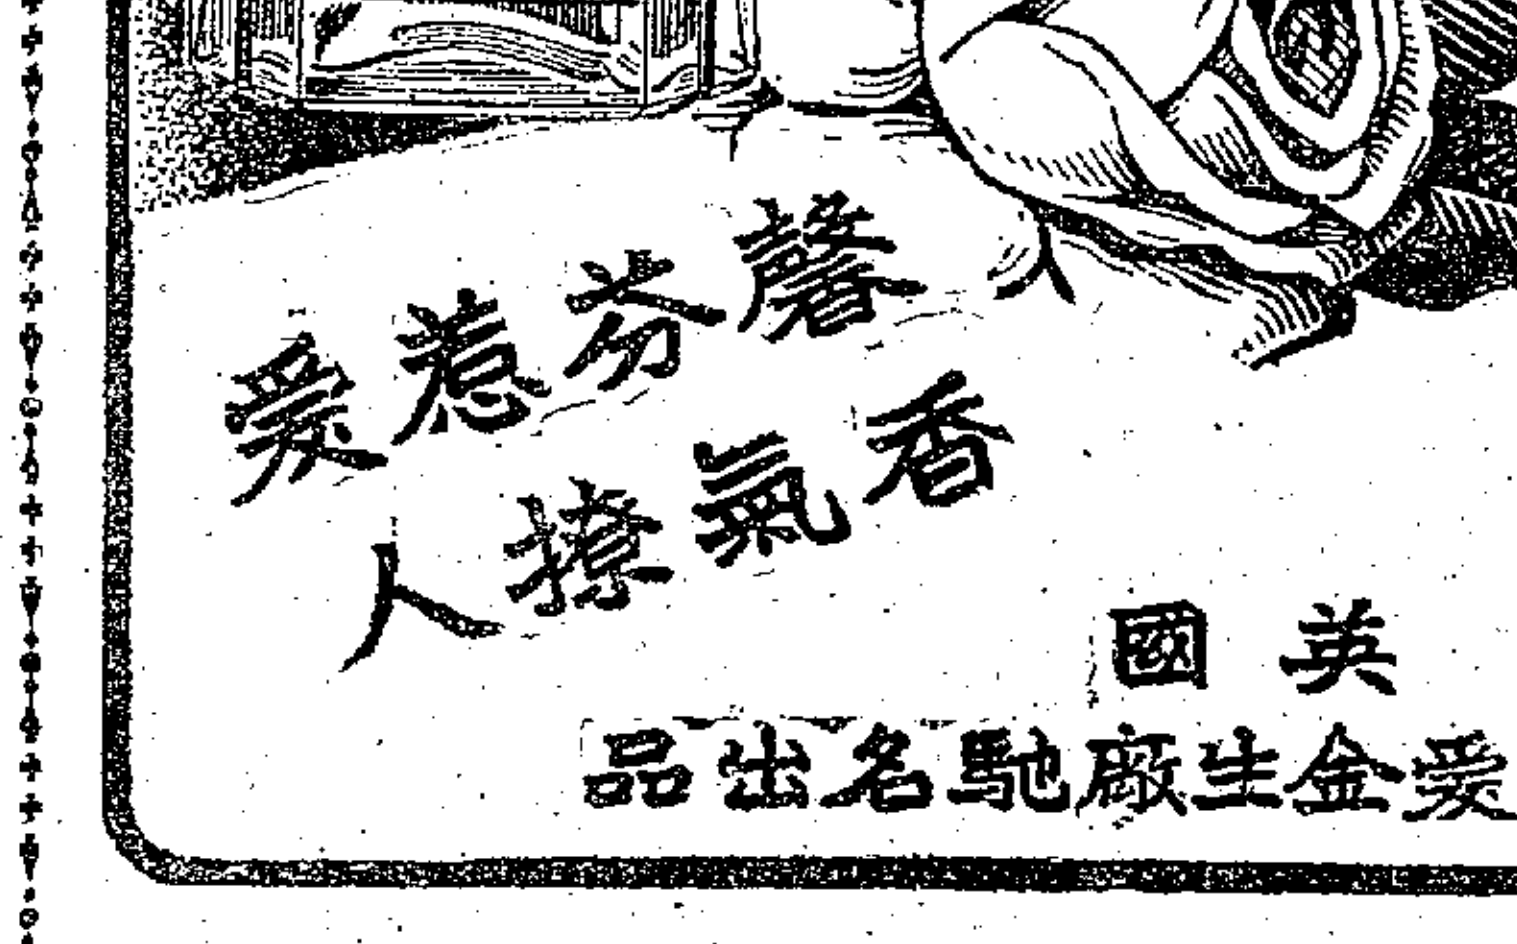 馨芬惹愛
香氣撩人
英國
愛金生廠馳名出品